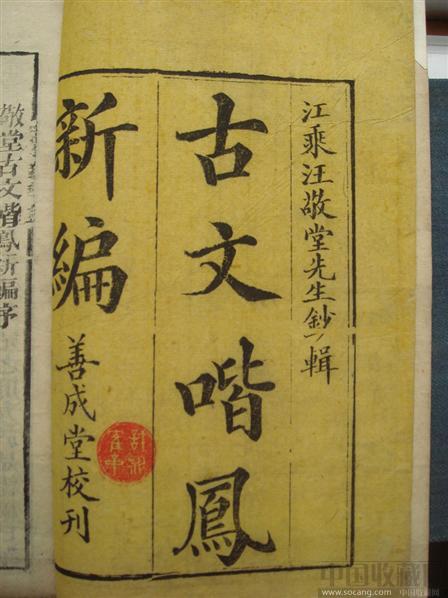 江乘汪敬堂先生鈔輯
古文喈鳳
新編
善成堂校刊
敬堂古文喈鳳新編序
中国收藏网
www.socang.com 中国收藏网